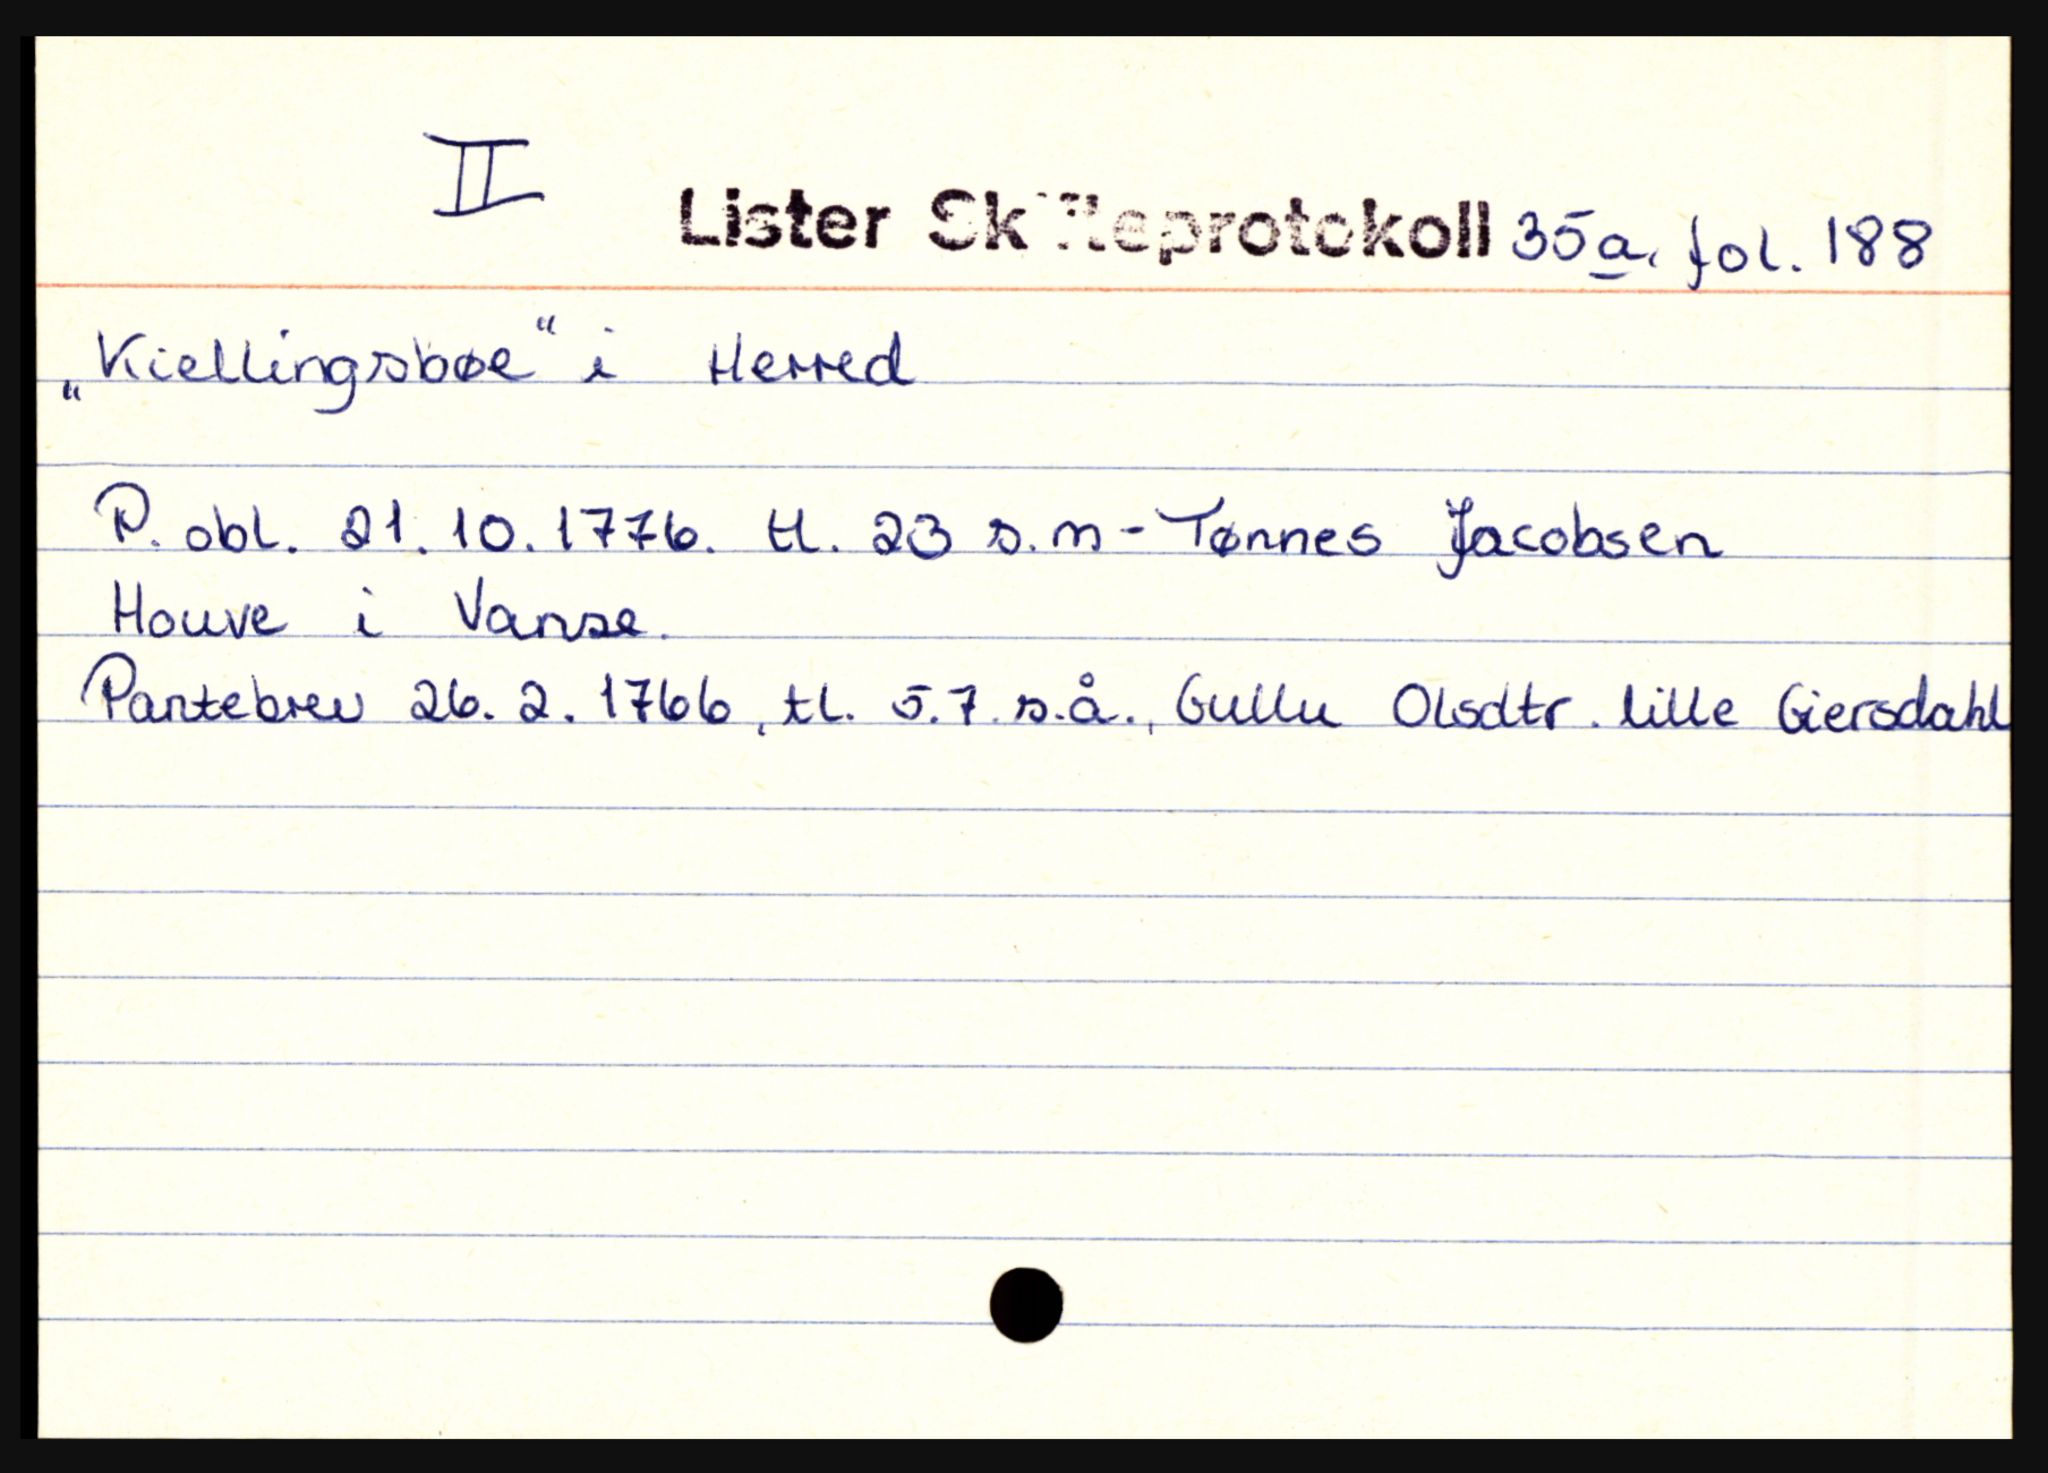 II
Lister Skifteprotokoll 35a, fol. 188
„Kiellingsbøe“ i Herred
P. obl. 21.10.1776. tl. 23 s.m - Tønnes Jacobsen
Houve i Vanse.
Pantebrev 26.2.1766, tl. 5.7.s.å., Gullu Olsdtr. lille Giersdahl